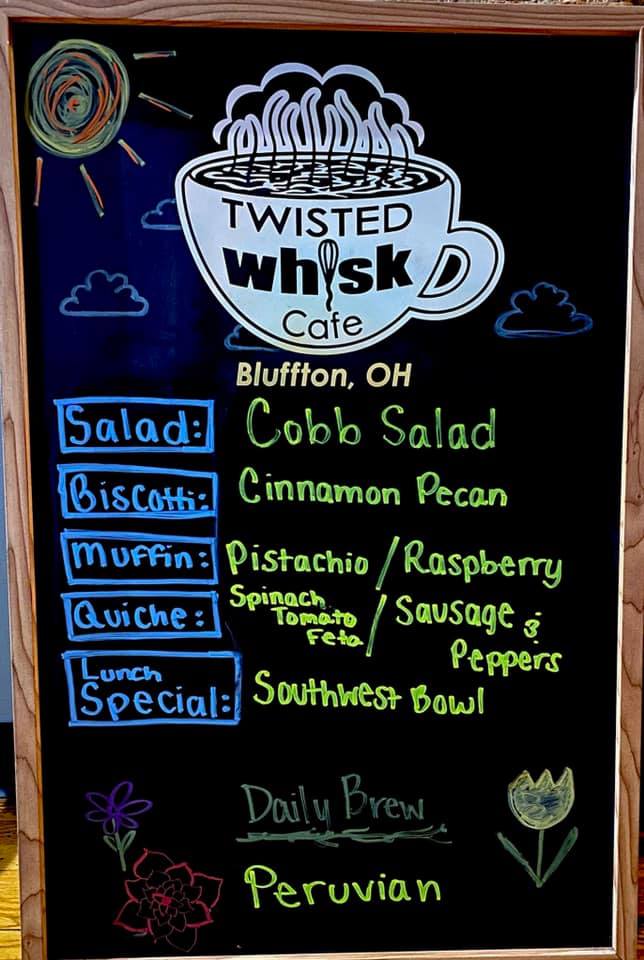 TWISTED
whisk
Cafe
Bluffton, OH
Salad: Cobb Salad
Biscotti: Cinnamon Pecan
Muffin: Pistachio / Raspberry
Quiche: Spinach Tomato Feta / Sausage & Peppers
Lunch Special: Southwest Bowl
Daily Brew
Peruvian